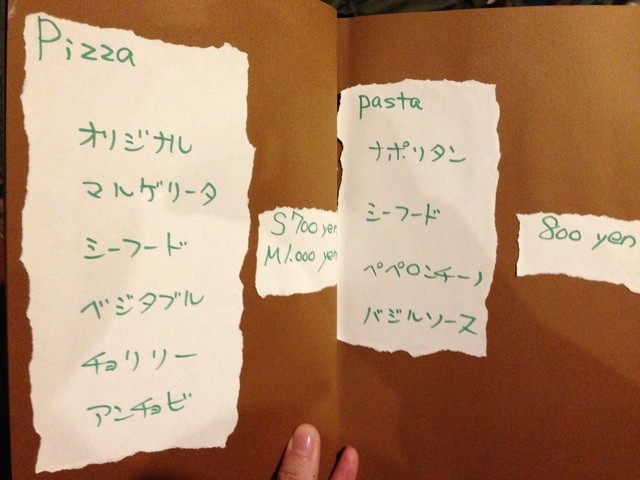 Pizza
オリジナル
マルゲリータ
シーフード
ベジタブル
チョリソー
アンチョビ
S 700 yen
M 1.000 yen
pasta
ナポリタン
シーフード
ペペロンチーノ
バジルソース
800 yen